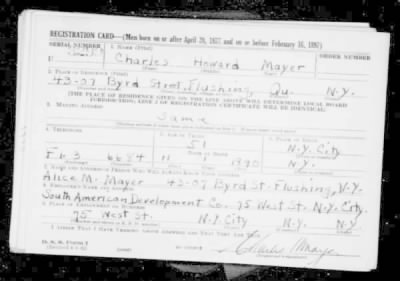 REGISTRATION CARD—(Men born on or after April 28, 1877 and on or before February 16, 1897)
SERIAL NUMBER 1. NAME (Print) ORDER NUMBER
U Charles Howard Mayer
2. PLACE OF RESIDENCE (Print)
43-07 Byrd Street, Flushing, Qu. N.Y.
(THE PLACE OF RESIDENCE GIVEN ON THE LINE ABOVE WILL DETERMINE LOCAL BOARD
JURISDICTION; LINE 2 OF REGISTRATION CERTIFICATE WILL BE IDENTICAL)
3. MAILING ADDRESS
Same
4. TELEPHONE
51 N.Y. City
Fl 3 6684 11 1 1890 N.Y.
7. NAME AND ADDRESS OF PERSON WHO WILL ALWAYS KNOW YOUR ADDRESS
Alice M. Mayer 43-07 Byrd St. Flushing, N.Y.
8. EMPLOYER'S NAME AND ADDRESS
South American Development Co. 75 West St. N.Y. City.
9. PLACE OF EMPLOYMENT OR BUSINESS
75 West St. N.Y. City N.Y. N.Y.
I AFFIRM THAT I HAVE VERIFIED ABOVE ANSWERS AND THAT THEY ARE TRUE.
D. S. S. Form 1
Charles Mayer